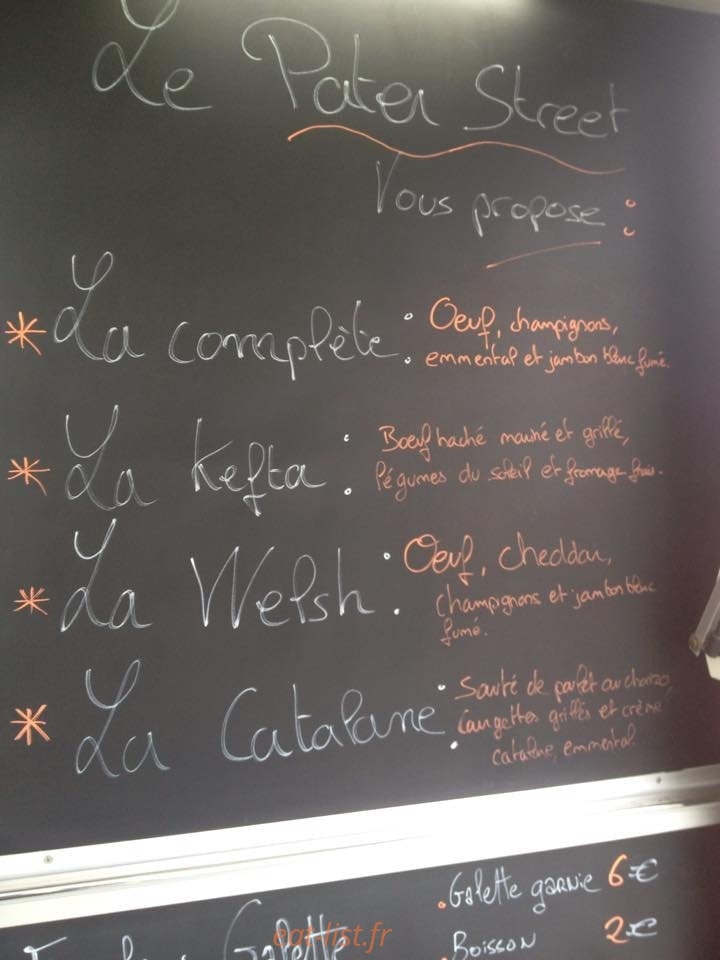 Le Pater Street
Vous propose :
* La complète : Oeuf, champignons,
emmental et jambon blanc fumé.
* La Kefta : Boeuf haché mariné et grillé,
légumes du soleil et fromage frais.
* La Welsh : Oeuf, cheddar,
champignons et jambon blanc
fumé.
* La Catalane : Sauté de poulet au chorizo,
Courgettes grillés et crème
catalane, emmental.
. Galette garnie 6€
Galette
. Boisson 2€
eat-list.fr